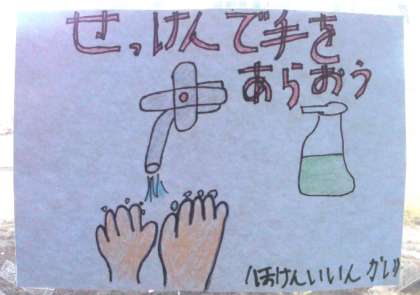 せっけんで手を
あらおう
ほけんいいんかい